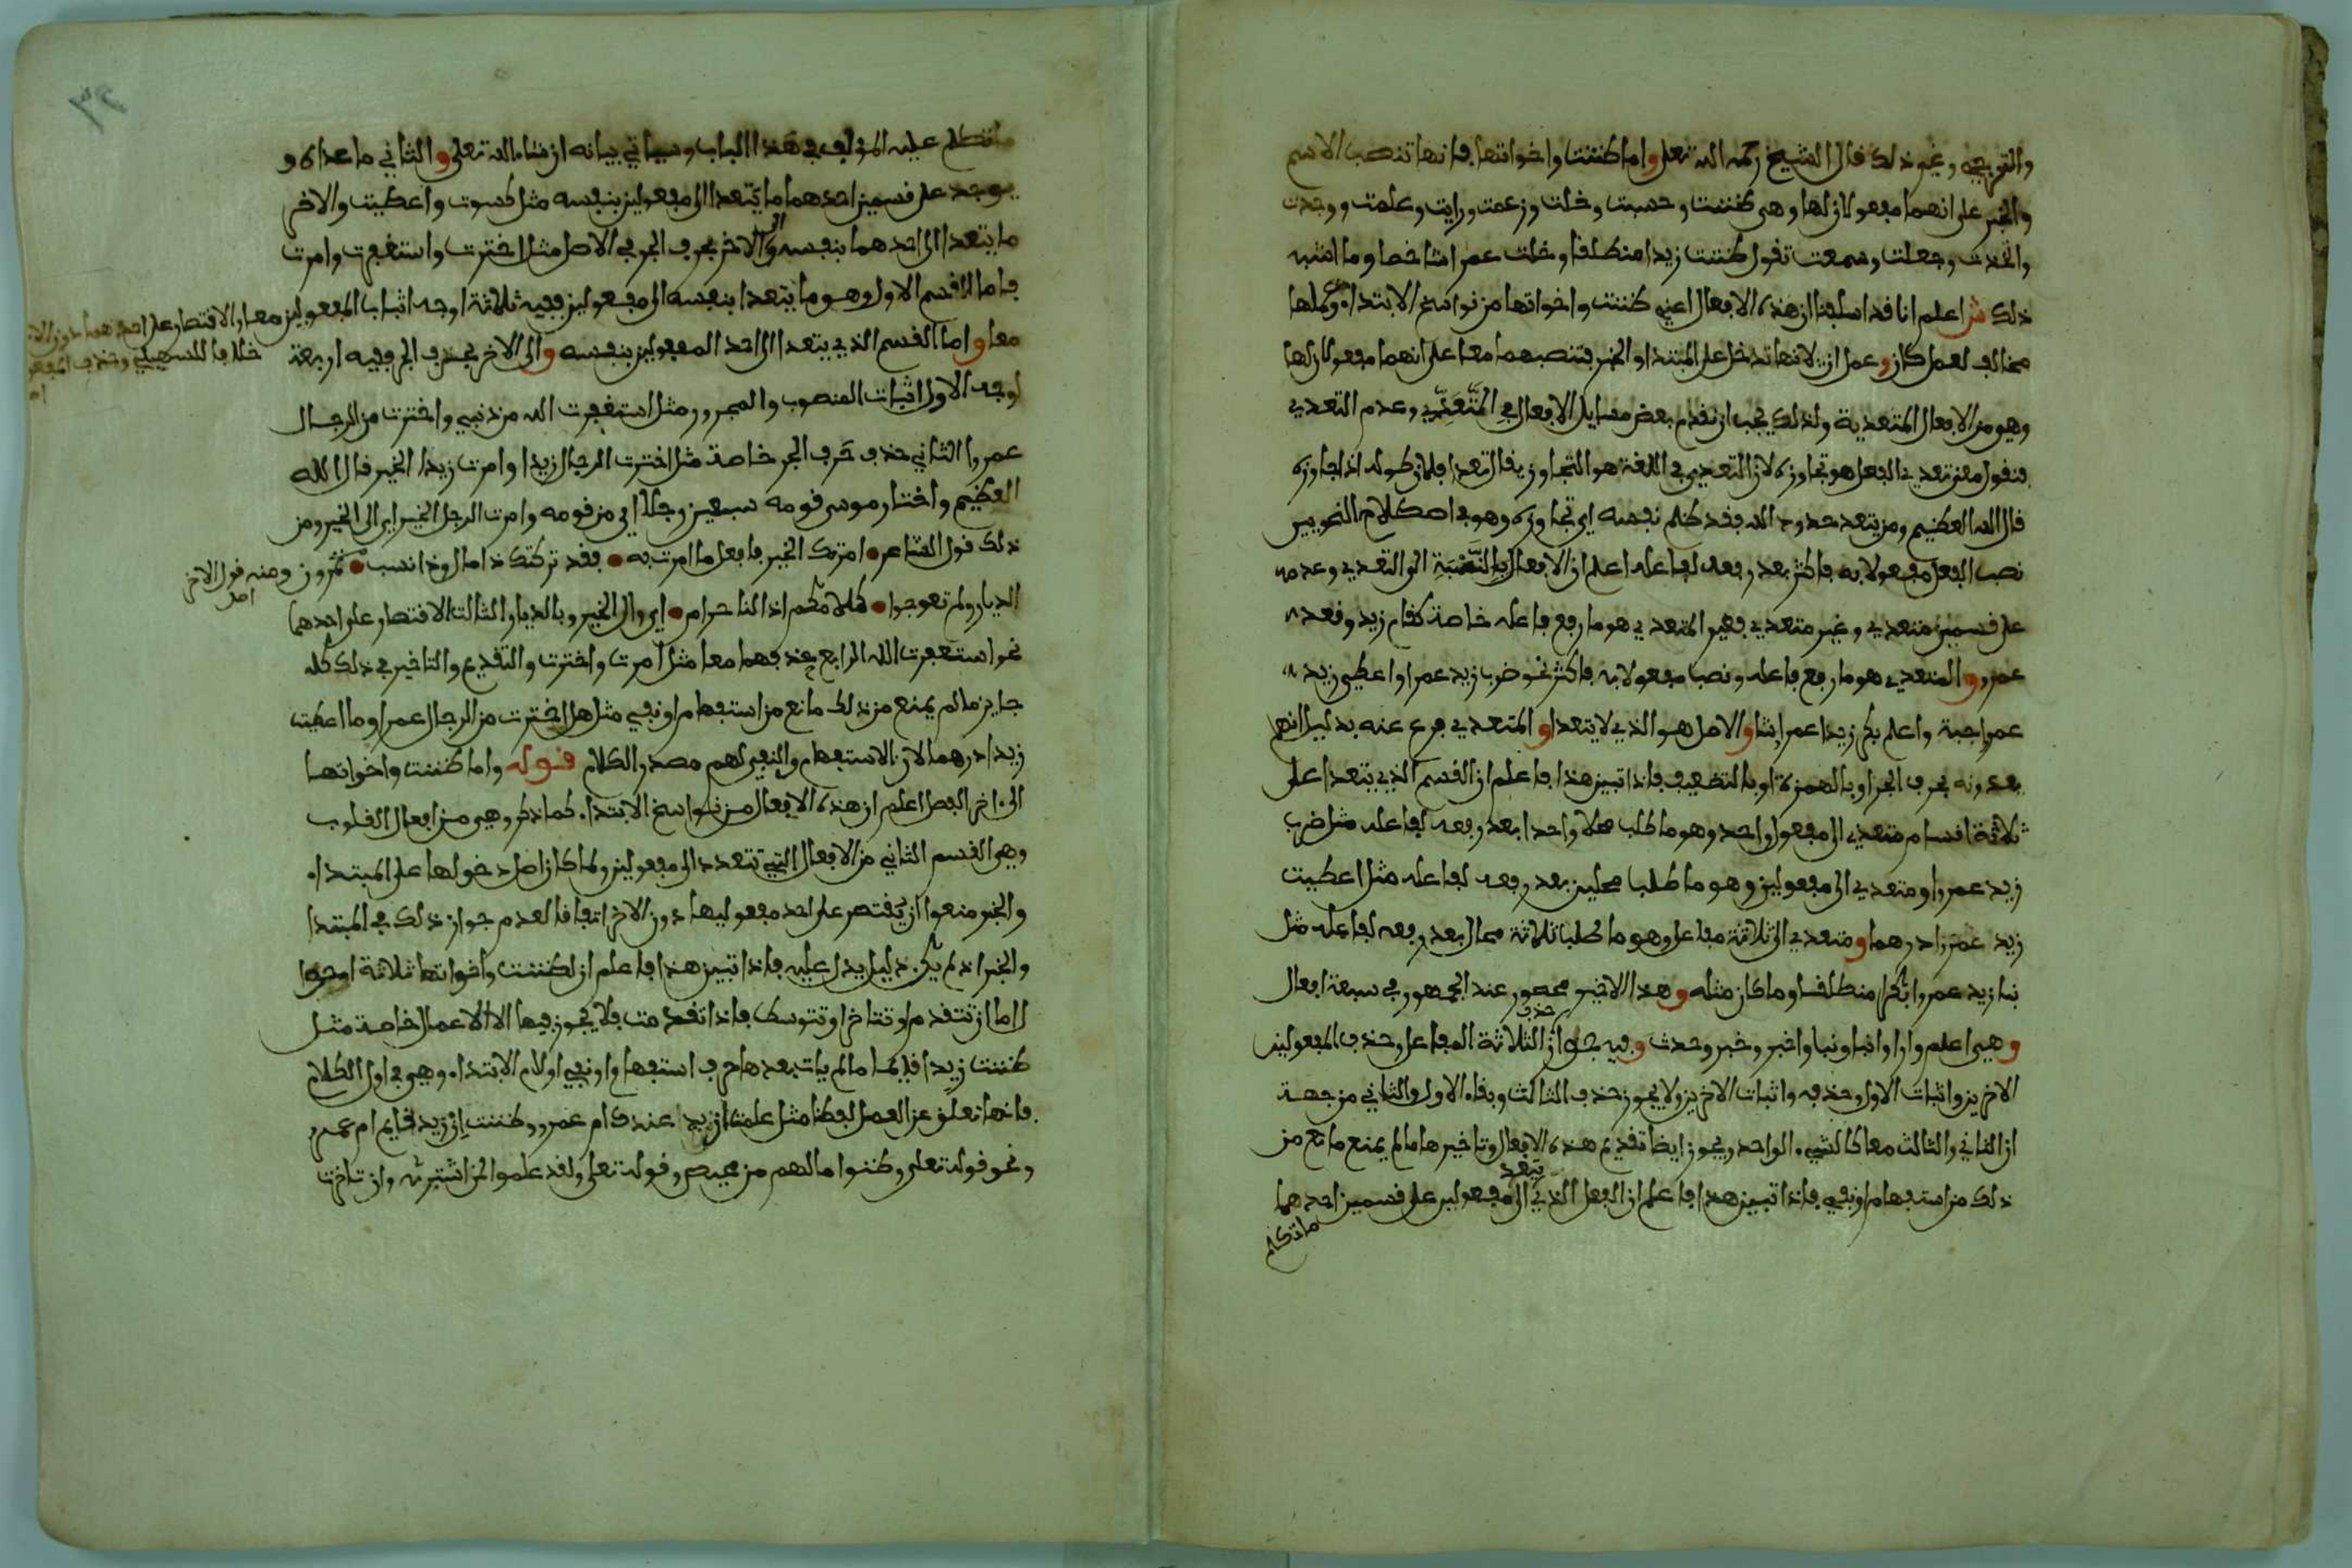 والترجي ونحو ذلك قال الشيخ رحمه الله تعلى واما ظننت واخواتها فانها تنصب الاسم
والخبر على انهما مفعولان لها وهي ظننت وحسبت وخلت وزعمت ورايت وعلمت ووجدت
واتخذت وجعلت وسمعت تقول ظننت زيدا منطلقا وخلت عمرا شاخصا وما اشبه
ذلك ش اعلم انا قد اسلفنا ان هذه الافعال اعني ظننت واخواتها من نواسخ الابتداء وعملها
مخالف لعمل كان وعمل ان لانها تدخل على المبتدا والخبر فتنصبهما معا على انهما مفعولان لها
وهو من الافعال المتعدية ولذلك يجب ان نقدم بعض مسايل الافعال في المتعدي وعدم التعدي
فنقول معنى تعدي الفعل هو تجاوزه لان التعدي في اللغة هو التجاوز يقال تعدا فلان طوله اذا جاوزه
قال الله العظيم ومن يتعد حدود الله فقد ظلم نفسه اي تجاوزه وهو في اصطلام النحويين
نصب الفعل مفعولا به فاكثر بعد رفعه لفاعله اعلم ان الافعال بالنسبة الى التعدي وعدمه
على قسمين متعدي وغير متعدي فغير المتعدي هو ما رفع فاعله خاصة كقام زيد وقعد
عمرو والمتعدي هو ما رفع فاعله ونصب مفعولا به فاكثر نحو ضرب زيد عمرا واعطى زيد
عمرا جبة واعلم بكر زيدا عمرا شا والاصل هو الذي لا يتعدا والمتعدي فرع عنه بدليل انهم
يعدونه بحرف الجر او بالهمزة او بالتضعيف فاذا تبين هذا فاعلم ان القسم الذي يتعدا على
ثلاثة اقسام متعدي الى مفعول واحد وهو ما طلب محلا واحدا بعد رفعه لفاعله مثل ضرب
زيد عمروا ومتعدي الى مفعولين وهو ما طلبا محلين بعد رفعه لفاعله مثل اعطيت
زيد عمرا درهما ومتعدي الى ثلاثة مفاعل وهو ما طلبا ثلاثة محال بعد رفعه لفاعله مثل
نبا زيد عمروا بكرا منطلقا وما كان مثله وهذا الاخير محصور عند الجمهور في سبعة افعال
وهي اعلم وارا وانبا ونبا واخبر وخبر وحدث وفيه جواز حذف الثلاثة المفاعل وحذف المفعولين
الاخرين واثبات الاول وحذفه واثبات الاخرين ولا يجوز حذف الثالث وبقاء الاول والثاني من جهة
ان الثاني والثالث معا كالشيء الواحد ويجوز ايضا تقديم هذه الافعال وتاخيرها ما لم يمنع مانع من
ذلك من استفهام او نفي فاذا تبين هذا فاعلم ان الفعل الذي يتعد الى مفعولين على قسمين احدهما
ما تكلم
ما تكلم عليه المؤلف في هذا الباب وسياتي بيانه ان شاء الله تعلى والثاني ما عداه و
يوجد على قسمين احدهما ما يتعدا الى مفعولين بنفسه مثل كسوت واعطيت والاخر
ما يتعدا الى احدهما بنفسه والى الاخر بحرف الجر في الاصل مثل اخترت واستغفرت وامرت
فاما القسم الاول وهو ما يتعدا بنفسه الى مفعولين ففيه ثلاثة اوجه اثبات المفعولين معا والاقتصار على احدهما دون الاخر
خلافا للسهيلي وحذف المفعو
معا واما القسم الذي يتعدا الى احد المفعولين بنفسه والى الاخر بحذف الجر ففيه اربعة
اوجه الاول اثبات المنصوب والمجرور مثل استغفرت الله من ذنبي واخترت من الرجال
عمروا الثاني حذف حرف الجر خاصة مثل اخترت الرجال زيدا وامرت زيدا الخير قال الله
العظيم واختار موسى قومه سبعين رجلا اي من قومه وامرت الرجل الخير اي الى الخير ومن
ذلك قول الشاعر امرتك الخير فافعل ما امرت به فقد تركتك ذا مال وذا نسب تمرون ومنه قول الاخر
الديار ولم تعوجوا كلامكم اذا لنا حرام اي والى الخير وبالديار الثالث الاقتصار على احدهما
نحو استغفرت الله الرابع حذفهما معا مثل امرت واخترت والتقديم والتاخير في ذلك كله
جايز ما لم يمنع من ذلك مانع من استفهام او نفي مثل هل اخترت من الرجال عمرا وما اعطيت
زيدا درهما لان الاستفهام والنفي لهم مصدر الكلام قوله واما ظننت واخواتها
الى اخر الفصل اعلم ان هذه الافعال من نواسخ الابتداء كما ذكر وهي من افعال القلوب
وهي القسم الثاني من الافعال التي تتعدد الى مفعولين ولما كان اصل دخولها على المبتداء
والخبر منعوا ان يقتصر على احد مفعوليها دون الاخر اتفاقا لعدم جواز ذلك في المبتدا
والخبر اذ لم يكن دليل يدل عليه فاذا تبين هذا فاعلم ان لظننت واخواتها ثلاثة احوال
اما ان تتقدم او تتاخر او تتوسط فاذا تقدمت فلا يجوز فيها الا الاعمال خاصة مثل
ظننت زيدا قايما ما لم يات بعدها حرف استفهام او نفي او لام الابتداء وهي في اول الكلام
فانها تعلق عن العمل لفظا مثل علمت ازيد عندك ام عمرو وظننت ازيد قايم ام عمرو
ونحو قوله تعلى وظنوا ما لهم من محيص وقوله تعلى ولقد علموا لمن اشتريه وان تاخرت